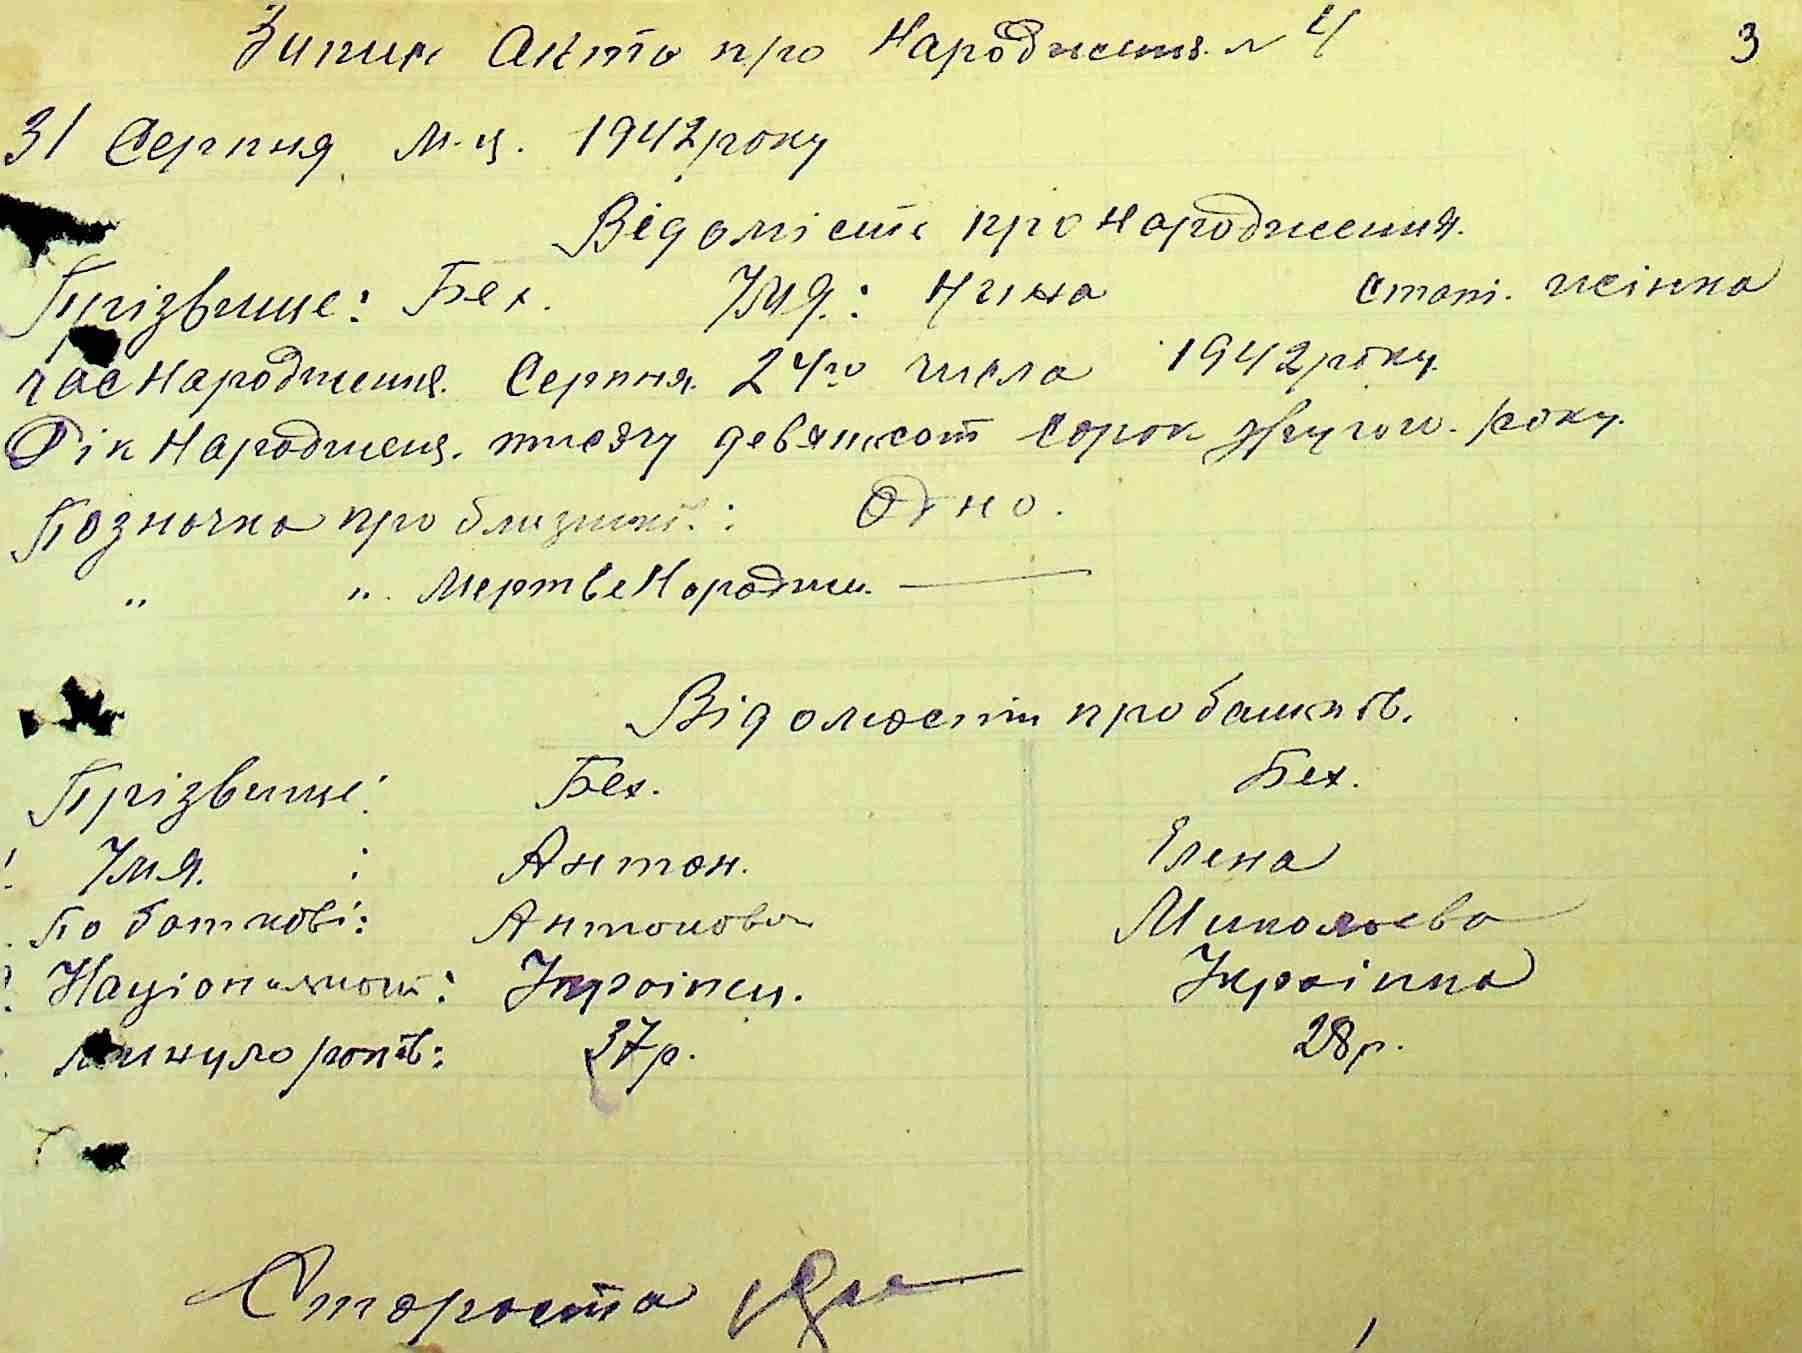 Запис Акта про Народження № 4
3
31 Серпня м-ц. 1942 року
Відомість про народження.
Прізвище: Бех. Імя: Нина стать. жінка
час народження. Серпня 24го числа 1942 року.
Рік Народженя. тисячу девятсот сорок другого. року.
Позночка про близнят: Одно.
" " Мертве Народжен. —
Відомости про батьків.
Прізвище: Бех. Бех.
Імя: Антон. Елена
По батькові: Антонович Миколаева
Національност: Українец. Українка
Минуло років: 37 р. 28 р.
Староста